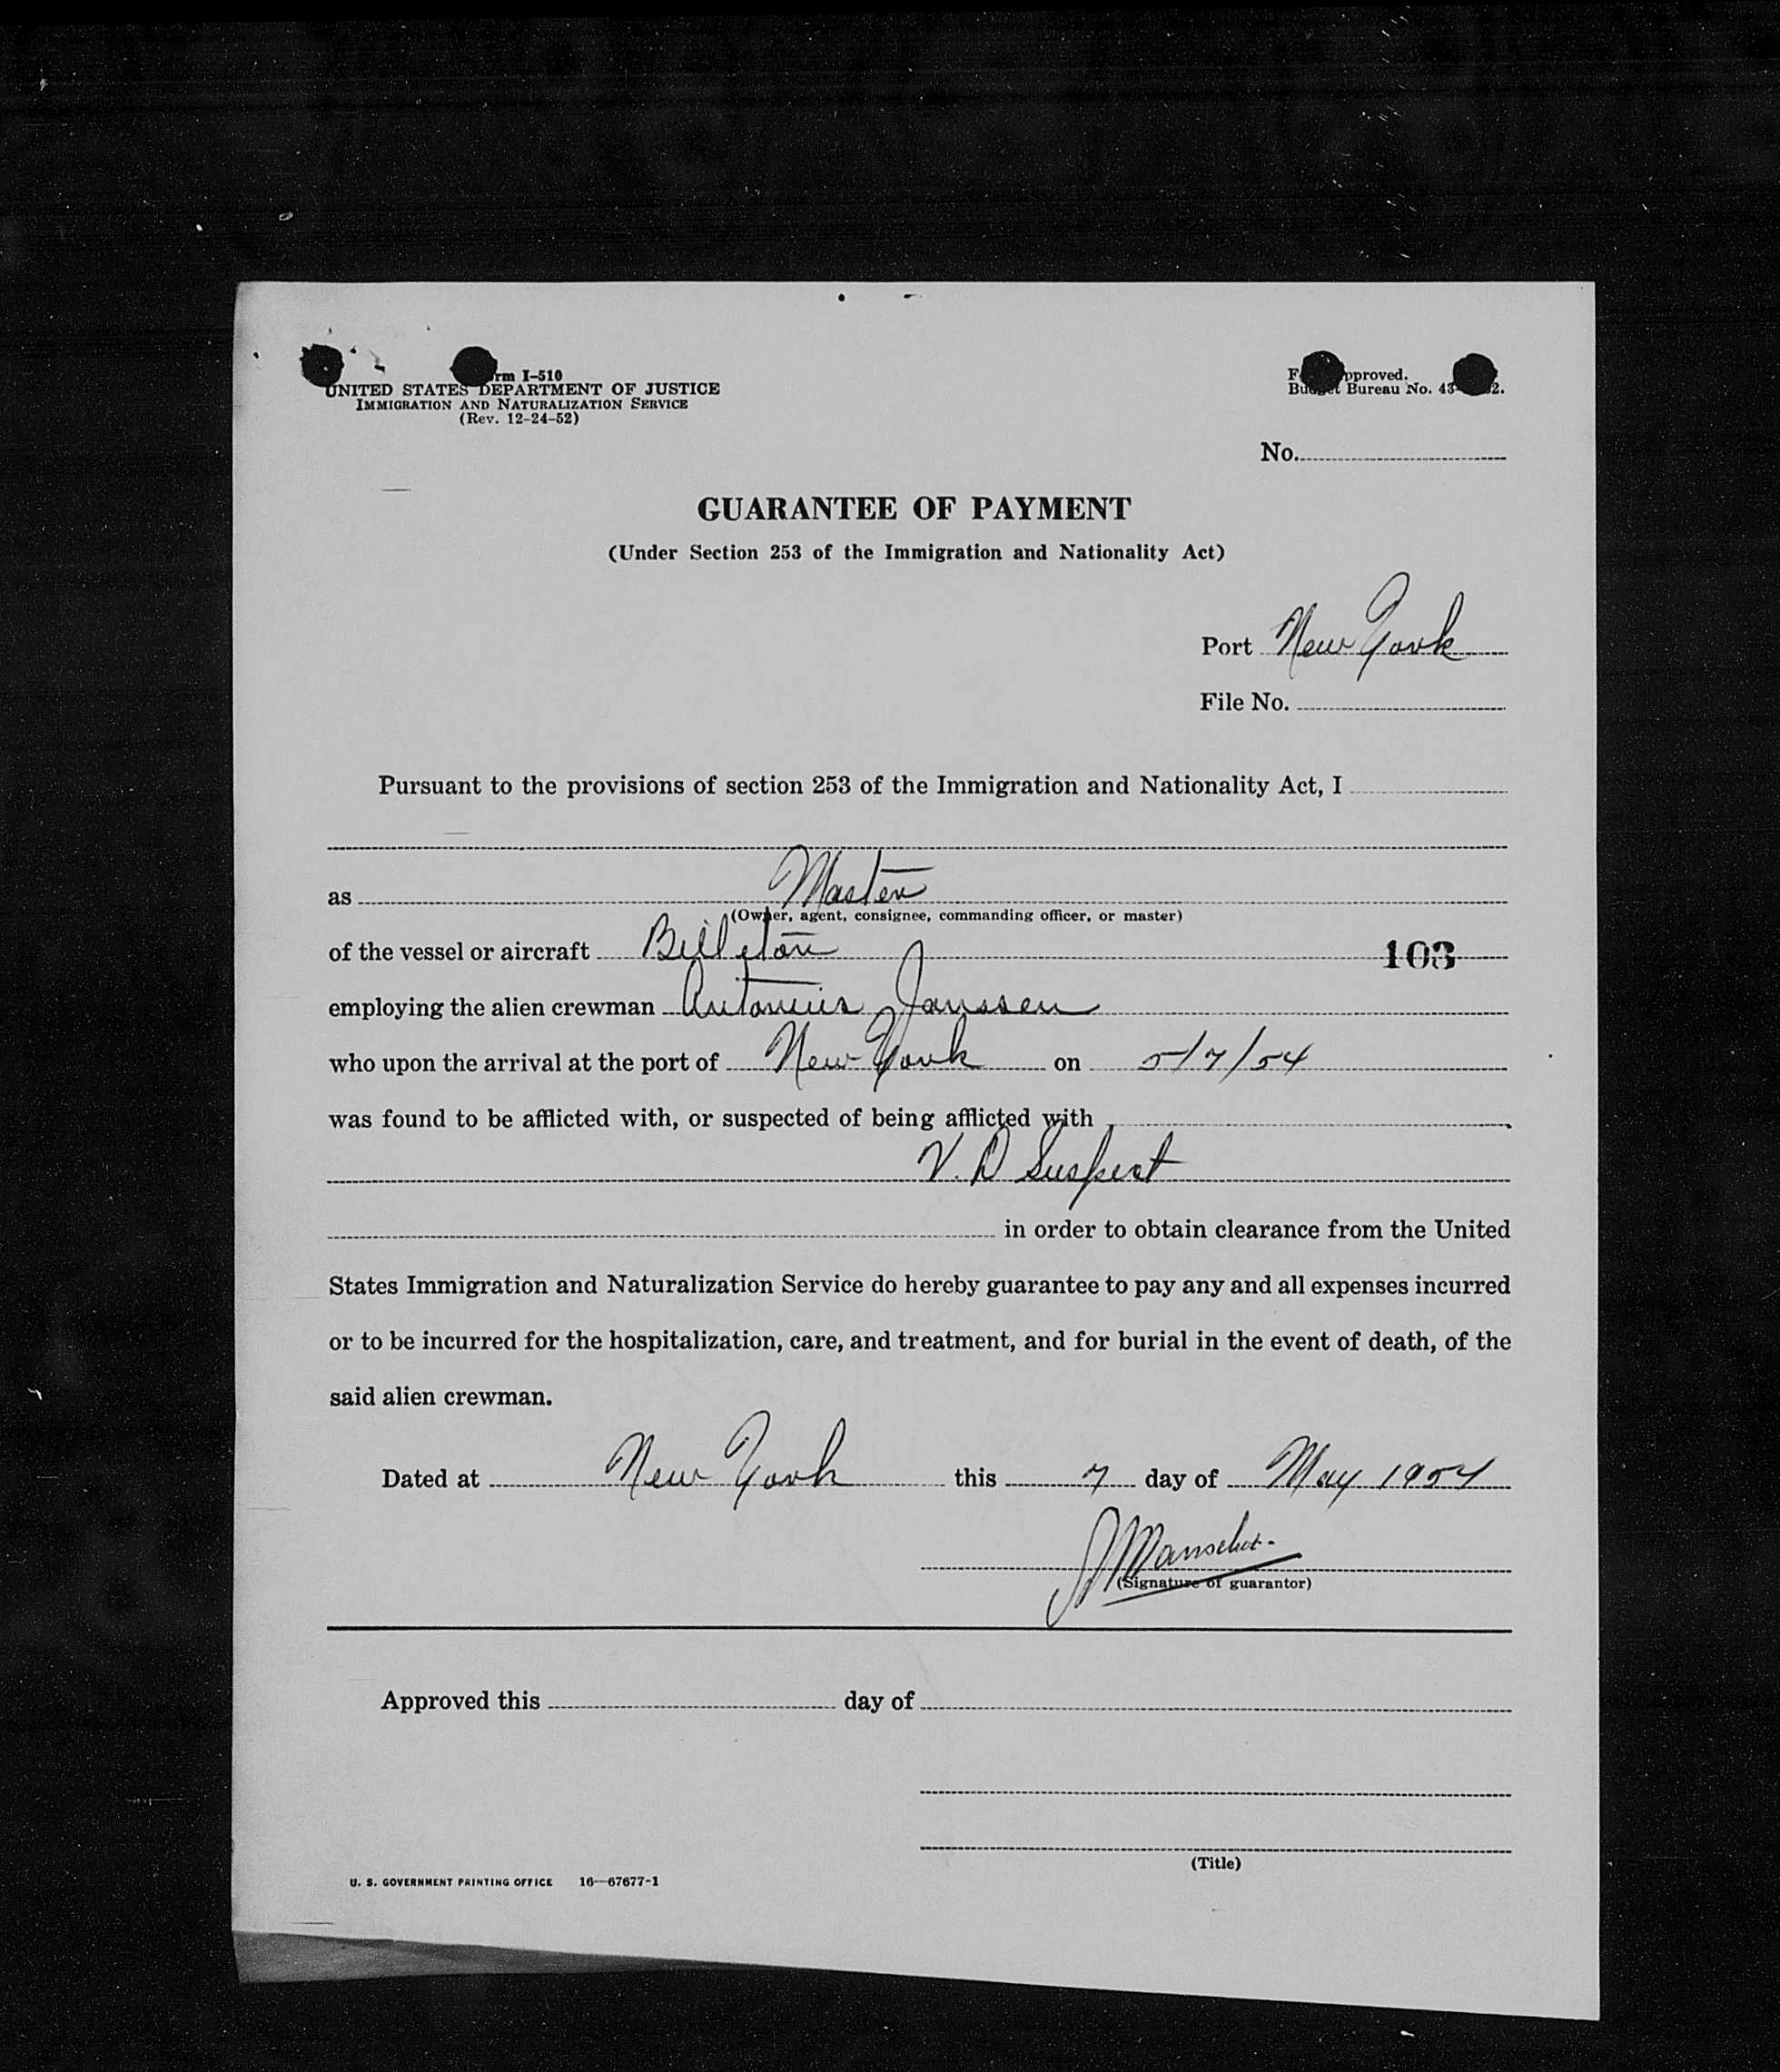 Form I-510
UNITED STATES DEPARTMENT OF JUSTICE
IMMIGRATION AND NATURALIZATION SERVICE
(Rev. 12-24-52)
Approved.
Budget Bureau No. 43-
No.
GUARANTEE OF PAYMENT
(Under Section 253 of the Immigration and Nationality Act)
Port New York
File No.
Pursuant to the provisions of section 253 of the Immigration and Nationality Act, I
as Master
(Owner, agent, consignee, commanding officer, or master)
of the vessel or aircraft Billeton 103
employing the alien crewman Antonius Janssen
who upon the arrival at the port of New York on 5/7/54
was found to be afflicted with, or suspected of being afflicted with
V. D Suspect
in order to obtain clearance from the United
States Immigration and Naturalization Service do hereby guarantee to pay any and all expenses incurred
or to be incurred for the hospitalization, care, and treatment, and for burial in the event of death, of the
said alien crewman.
Dated at New York this 7 day of May 1954
(Signature of guarantor)
Approved this day of
(Title)
U. S. GOVERNMENT PRINTING OFFICE 16—67677-1